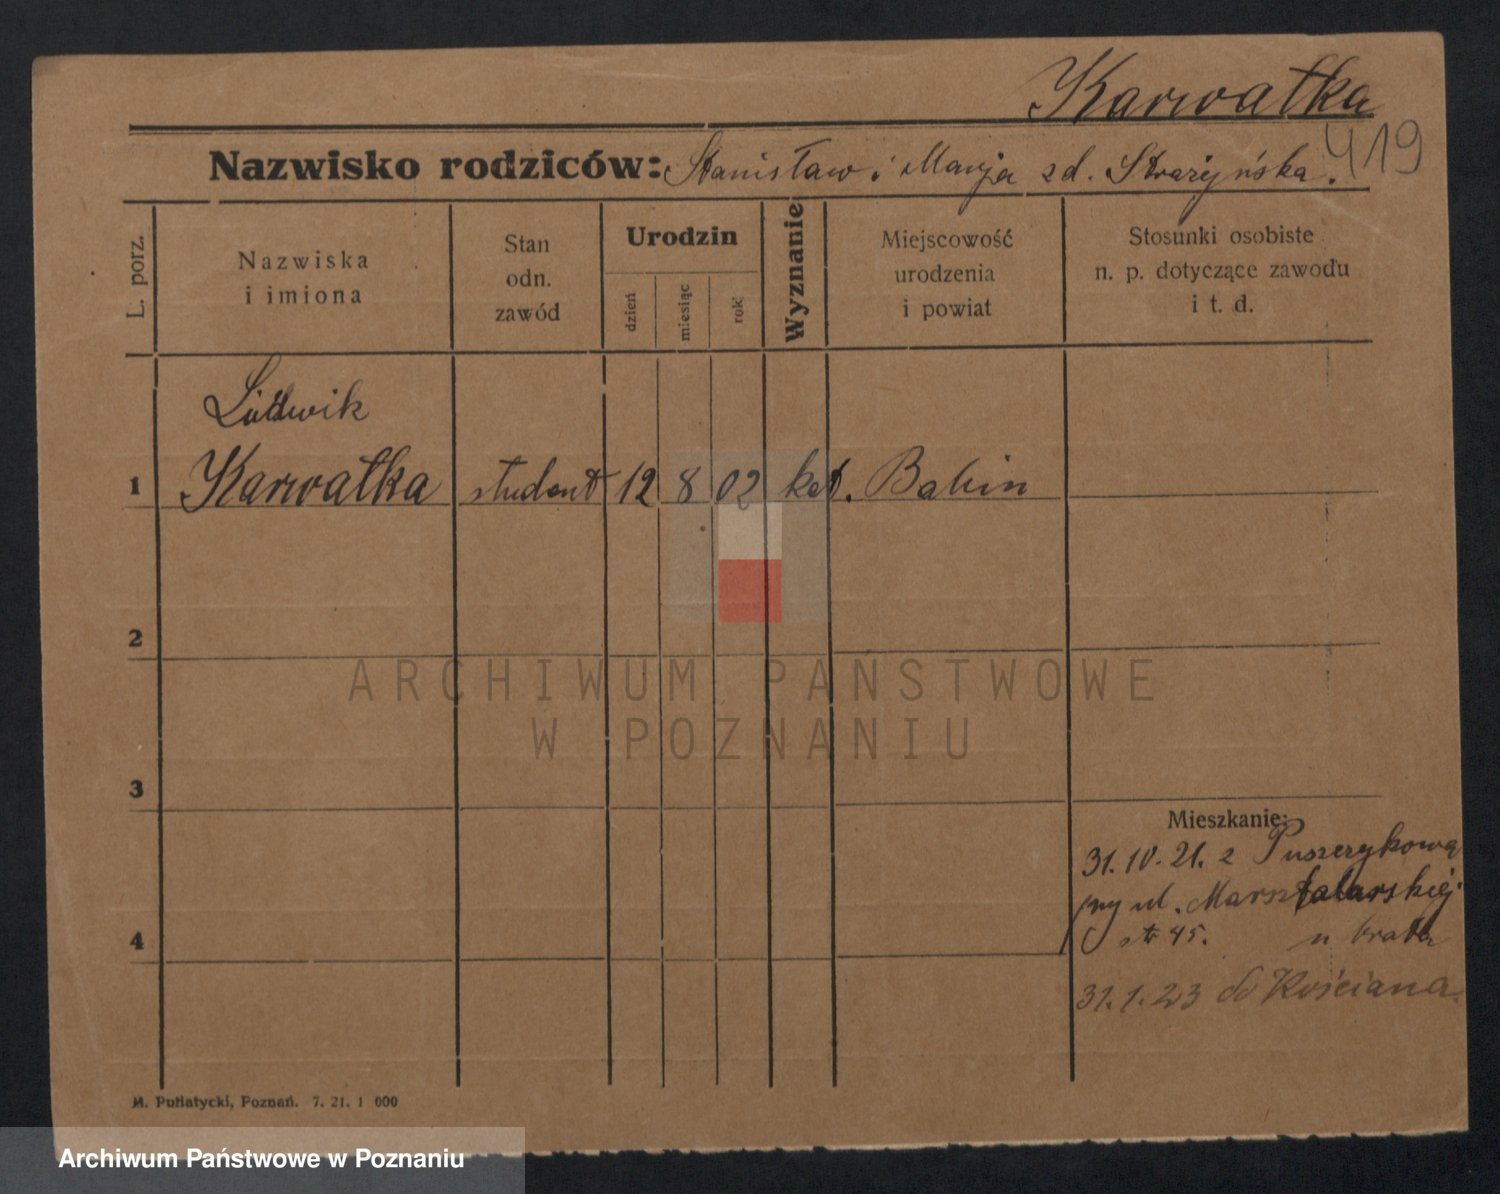 Karwatka
419
Nazwisko rodziców: Stanisław i Marja zd. Strażyńska.
L. porz.
Nazwiska i imiona
Stan odn. zawód
Urodzin
dzień
miesiąc
rok
Wyznanie
Miejscowość urodzenia i powiat
Stosunki osobiste n. p. dotyczące zawodu i t. d.
Ludwik
1 Karwatka student 12 8 02 kat. Babin
2
ARCHIWUM PAŃSTWOWE
W POZNANIU
3
Mieszkanie:
31. 10. 21. z Puszczykowa
przy ul. Marsztalarskiej
4
45. u brata
31. 1. 23 do Kościana
M. Putiatycki, Poznań. 7. 21. 1 000
Archiwum Państwowe w Poznaniu